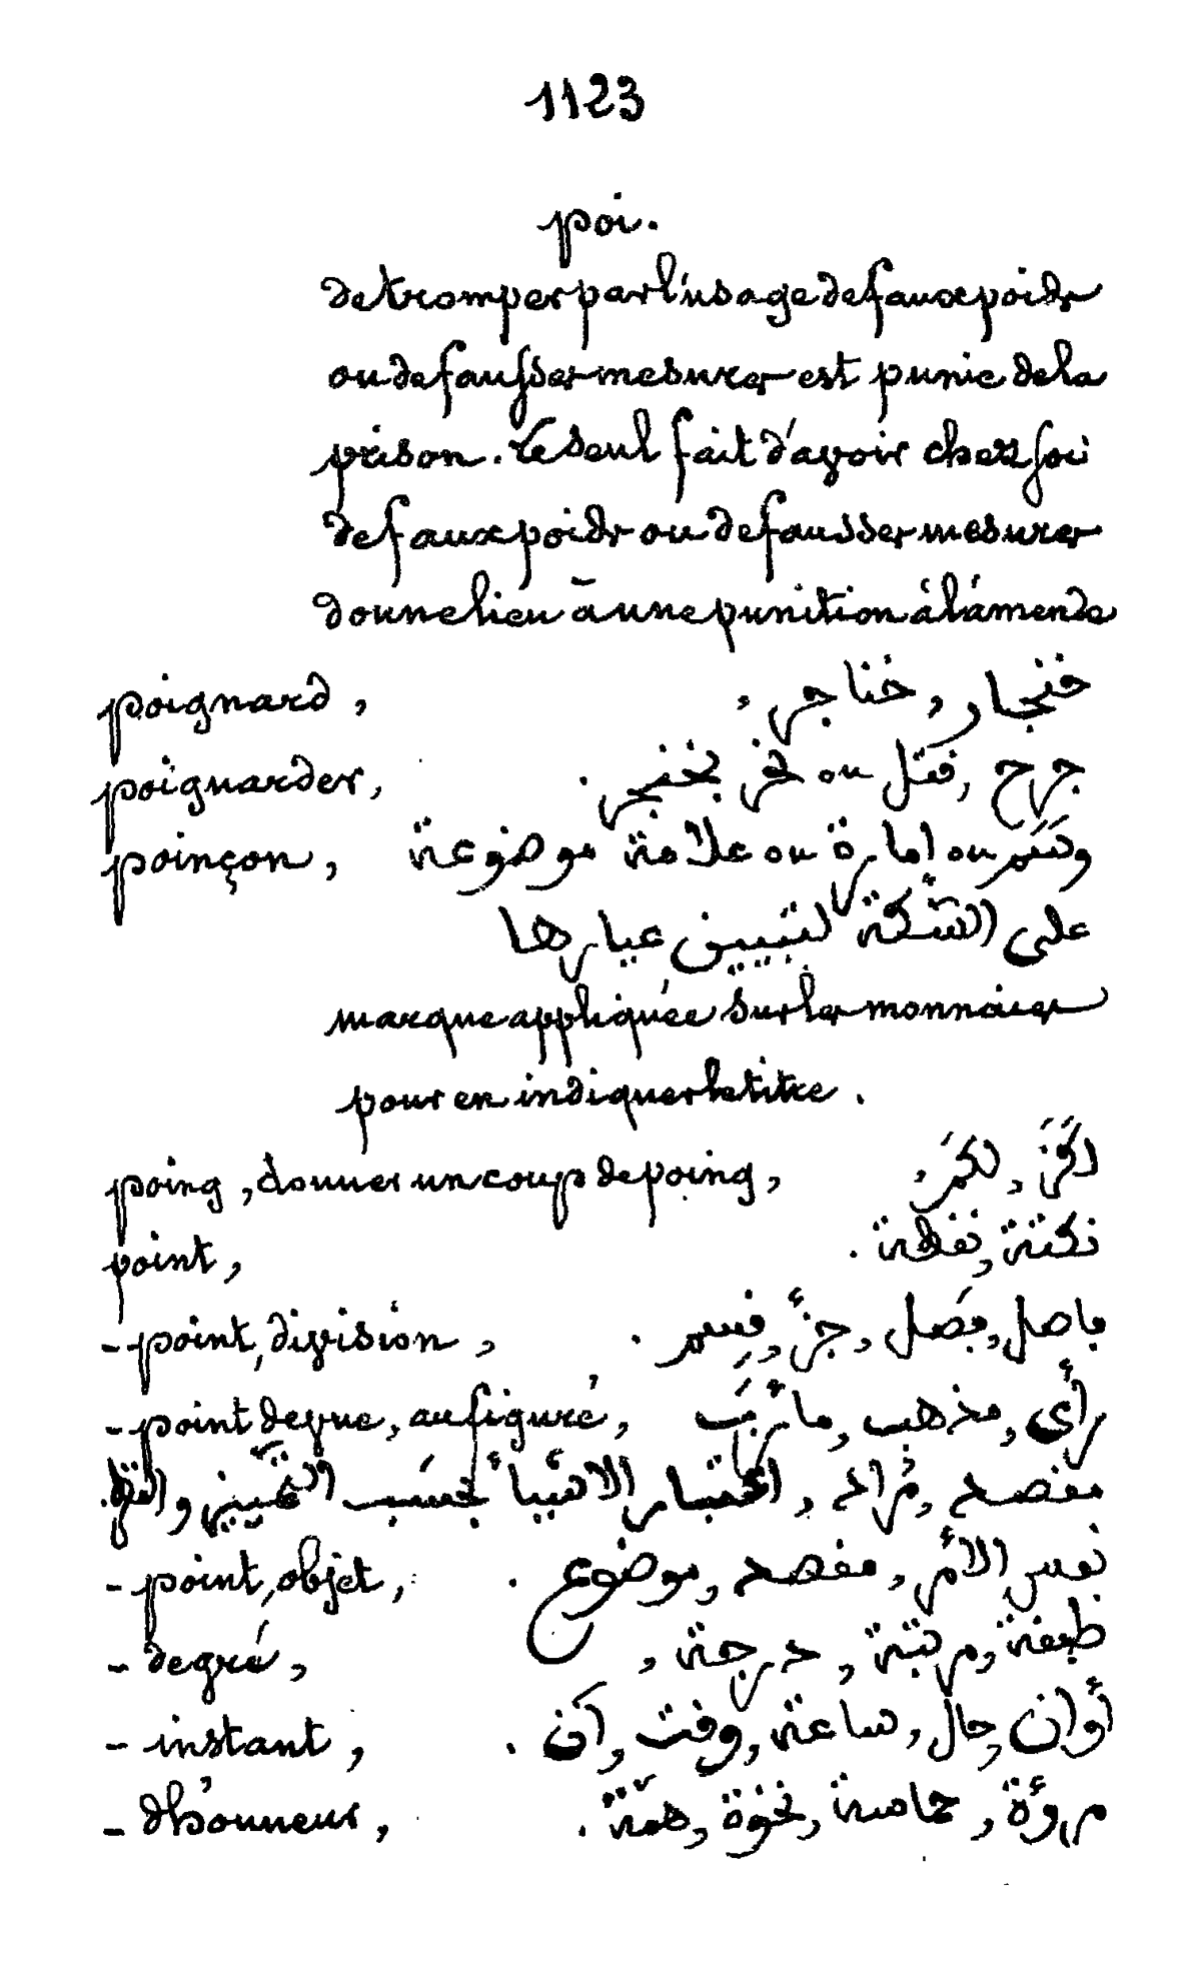 1123
poi.
de tromper par l'usage de faux poids
ou de fausses mesures est punie de la
prison. Le seul fait d'avoir chez soi
de faux poids ou de fausses mesures
donne lieu à une punition à l'amende
poignard, خنجار, خناجر,
poignarder, جرح, قتل ou نحر بخنجر.
poinçon, وَسَم ou امارة ou علامة موضوعة
على السّكة لتبيين عيارها
marque appliquée sur les monnaies
pour en indiquer le titre.
poing, donner un coup de poing, لكَزَ, لكَمَ,
point, نكتة, نقطة.
- point, division, فاصل, فَصل, جزأ, قِسم.
- point de vue, au figuré, رأى, مذهب, مأرَب
مقصد, مُراد, اعتبار الاشيأ بحسَب التمييز و
- point, objet, نفس الأمر, مقصد, موضوع.
- degré, طبقة, مرتبة, درجة,
- instant, أوان, حال, ساعة, وقت, آن.
- d'honneur, مروءة, حماسة, نخوة, همّة.